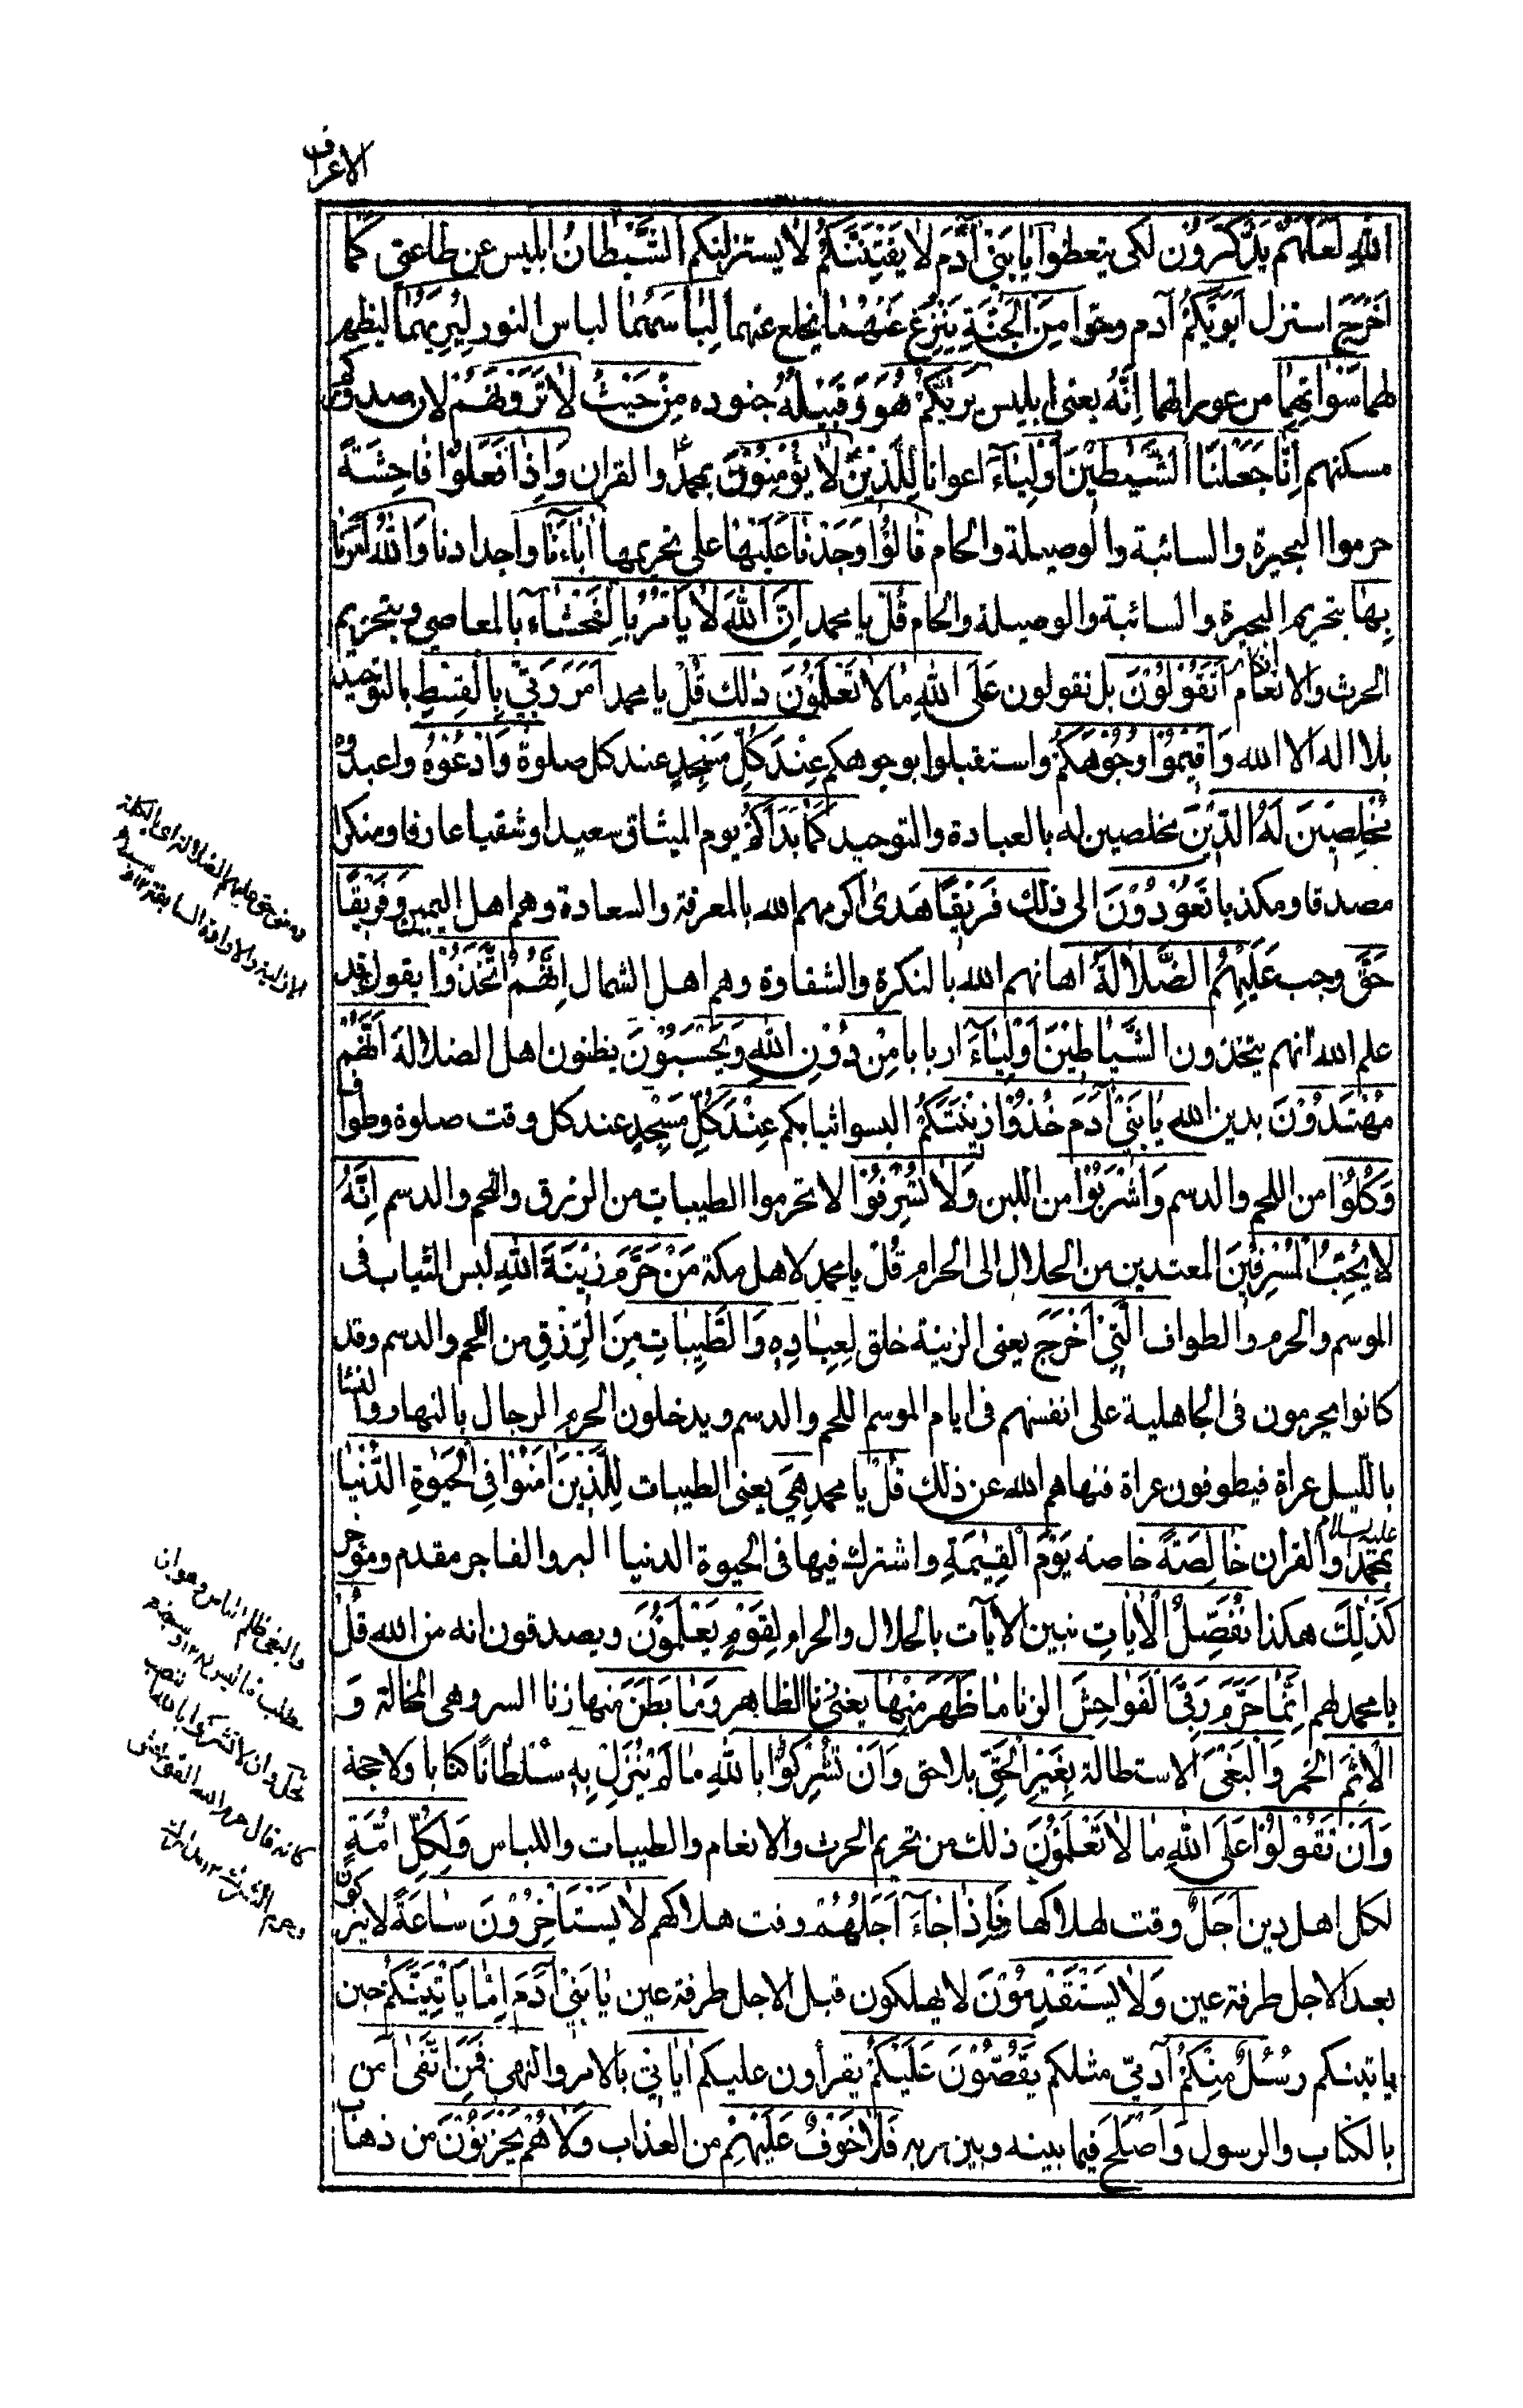 الاعراف
اللّٰهِ لَعَلَّهُمْ يَذَّكَّرُوْنَ لكى يتعظوا يَا بَنِىْ آدَمَ لَا يَفْتِنَنَّكُمْ لا يستزلنكم الشَّيْطَانُ ابليس عن طاعتى كَمَا
اَخْرَجَ استزل اَبَوَيْكُمْ آدم وحوا مِنَ الْجَنَّةِ يَنْزِعُ عَنْهُمَا يخلع عنهما لِبَاسَهُمَا لباس النور لِيُرِيَهُمَا ليظهر
لهما سَوْاٰتِهِمَا من عوراتهما اِنَّهُ يعنى ابليس يَرٰىكُمْ هُوَ وَقَبِيْلُهُ جنوده مِنْ حَيْثُ لَا تَرَوْنَهُمْ لان صدوركم
مسكنهم اِنَّا جَعَلْنَا الشَّيٰطِيْنَ اَوْلِيَآءَ اعوانا لِلَّذِيْنَ لَا يُؤْمِنُوْنَ بمحمد والقران وَاِذَا فَعَلُوْا فَاحِشَةً
حرموا البحيرة والسائبة والوصيلة والحام قَالُوْا وَجَدْنَا عَلَيْهَا على تحريمها اٰبَآءَنَا واجدادنا وَاللّٰهُ اَمَرَنَا
بِهَا بتحريم البحيرة والسائبة والوصيلة والحام قُلْ يا محمد اِنَّ اللّٰهَ لَا يَاْمُرُ بِالْفَحْشَآءِ بالمعاصى وبتحريم
الحرث والانعام اَتَقُوْلُوْنَ بل تقولون عَلَى اللّٰهِ مَا لَا تَعْلَمُوْنَ ذلك قُلْ يا محمد اَمَرَ رَبِّىْ بِالْقِسْطِ بالتوحيد
بلا اله الا الله وَاَقِيْمُوْا وُجُوْهَكُمْ واستقبلوا بوجوهكم عِنْدَ كُلِّ مَسْجِدٍ عند كل صلوة وَادْعُوْهُ واعبدوه
مُخْلِصِيْنَ لَهُ الدِّيْنَ مخلصين له بالعبادة والتوحيد كَمَا بَدَاَكُمْ يوم الميثاق سعيدا وشقيا عارفا ومنكرا
مصدقا ومكذبا تَعُوْدُوْنَ الى ذلك فَرِيْقًا هَدٰى اكرمهم الله بالمعرفة والسعادة وهم اهل اليمين وَفَرِيْقًا
حَقَّ وجب عَلَيْهِمُ الضَّلَالَةُ اهانهم الله بالنكرة والشقاوة وهم اهل الشمال اِنَّهُمُ اتَّخَذُوْا يقول قد
علم الله انهم يتخذون الشَّيَاطِيْنَ اَوْلِيَآءَ اربابا مِنْ دُوْنِ اللّٰهِ وَيَحْسَبُوْنَ يظنون اهل الضلالة اَنَّهُمْ
مُهْتَدُوْنَ بدين الله يَا بَنِىْ آدَمَ خُذُوْا زِيْنَتَكُمْ البسوا ثيابكم عِنْدَ كُلِّ مَسْجِدٍ عند كل وقت صلوة وطواف
وَكُلُوْا من اللحم والدسم وَاشْرَبُوْا من اللبن وَلَا تُسْرِفُوْا لا تحرموا الطيبات من الرزق واللحم والدسم اِنَّهُ
لَا يُحِبُّ الْمُسْرِفِيْنَ المعتدين من الحلال الى الحرام قُلْ يا محمد لاهل مكة مَنْ حَرَّمَ زِيْنَةَ اللّٰهِ لبس الثياب فى
الموسم والحرم والطواف الَّتِىْ اَخْرَجَ يعنى الزينة خلق لِعِبَادِهٖ وَالطَّيِّبَاتِ مِنَ الرِّزْقِ من اللحم والدسم وقد
كانوا يحرمون فى الجاهلية على انفسهم فى ايام الموسم اللحم والدسم ويدخلون الحرم الرجال بالنهار والنساء
بالليل عراة فيطوفون عراة فنهاهم الله عن ذلك قُلْ يا محمد هِىَ يعنى الطيبات لِلَّذِيْنَ اٰمَنُوْا فِى الْحَيٰوةِ الدُّنْيَا
بمحمد عليه السلام والقران خَالِصَةً خاصة يَوْمَ الْقِيٰمَةِ واشترك فيها فى الحيوة الدنيا البر والفاجر مقدم ومؤخر
كَذٰلِكَ هكذا نُفَصِّلُ الْاٰيَاتِ نبين الآيات بالحلال والحرام لِقَوْمٍ يَعْلَمُوْنَ ويصدقون انه من الله قُلْ
يا محمد لهم اِنَّمَا حَرَّمَ رَبِّىَ الْفَوَاحِشَ الزنا مَا ظَهَرَ مِنْهَا يعنى زنا الظاهر وَمَا بَطَنَ منها زنا السر وهى المخالة وَ
الْاِثْمَ الخمر وَالْبَغْىَ الاستطالة بِغَيْرِ الْحَقِّ بلا حق وَاَنْ تُشْرِكُوْا بِاللّٰهِ مَا لَمْ يُنَزِّلْ بِهٖ سُلْطَانًا كتابا ولا حجة
وَاَنْ تَقُوْلُوْا عَلَى اللّٰهِ مَا لَا تَعْلَمُوْنَ ذلك من تحريم الحرث والانعام والطيبات واللباس وَلِكُلِّ اُمَّةٍ
لكل اهل دين اَجَلٌ وقت لهلاكها فَاِذَا جَآءَ اَجَلُهُمْ وقت هلاكهم لَا يَسْتَاْخِرُوْنَ سَاعَةً لا يتركون
بعد الاجل طرفة عين وَلَا يَسْتَقْدِمُوْنَ لا يهلكون قبل الاجل طرفة عين يَا بَنِىْ آدَمَ اِمَّا يَاْتِيَنَّكُمْ حين
ياتينكم رُسُلٌ مِنْكُمْ آدمى مثلكم يَقُصُّوْنَ عَلَيْكُمْ يقرأون عليكم اٰيَاتِىْ بالامر والنهى فَمَنِ اتَّقٰى آمن
بالكتاب والرسول وَاَصْلَحَ فيما بينه وبين ربه فَلَا خَوْفٌ عَلَيْهِمْ من العذاب وَلَا هُمْ يَحْزَنُوْنَ من ذهاب
حق عليهم الضلالة اى الكلمة
الازلية والارادة السابقة
والبغى ظلم الناس وهو ان
وان لا تشركوا بالله
كانه قال حرم الله الفواحش
وحرم الشرك